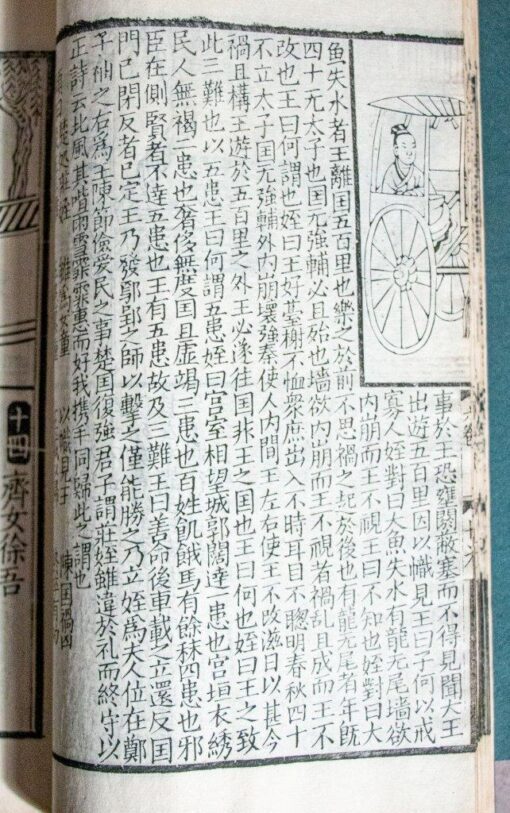 事於王恐壅閼蔽塞而不得見聞大王
出遊五百里因以幟見王曰子何以戒
寡人姪對曰大魚失水有龍无尾墻欲
内崩而王不視王曰不知也姪對曰大
魚失水者王離国五百里也樂之於前不思禍之起於後也有龍无尾者年既
四十无太子也国无強輔必且殆也墻欲内崩而王不視者禍乱且成而王不
改也王曰何謂也姪曰王好臺榭不恤衆庶出入不時耳目不聰明春秋四十
不立太子国无強輔外内崩壞強秦使人内間王左右使王不改滋日以甚今
禍且構王遊於五百里之外王必遂往国非王之国也王曰何也姪曰王之致
此三難也以五患王曰何謂五患姪曰宮室相望城郭闊達一患也宮垣衣綉
民人無褐二患也奢侈無度国且虚竭三患也百姓飢餓馬有餘秣四患也邪
臣在側賢者不達五患也王有五患故及三難王曰善命後車載之立還反国
門已閉反者已定王乃發鄢郢之師以擊之僅能勝之乃立姪為夫人位在鄭
子袖之右為王陳節儉愛民之事楚国復強君子謂莊姪雖違於礼而終守以
正詩云北風其喈雨雪霏霏惠而好我携手同歸此之謂也
以幟見王 陳国禍凶
十四 齊女徐吾